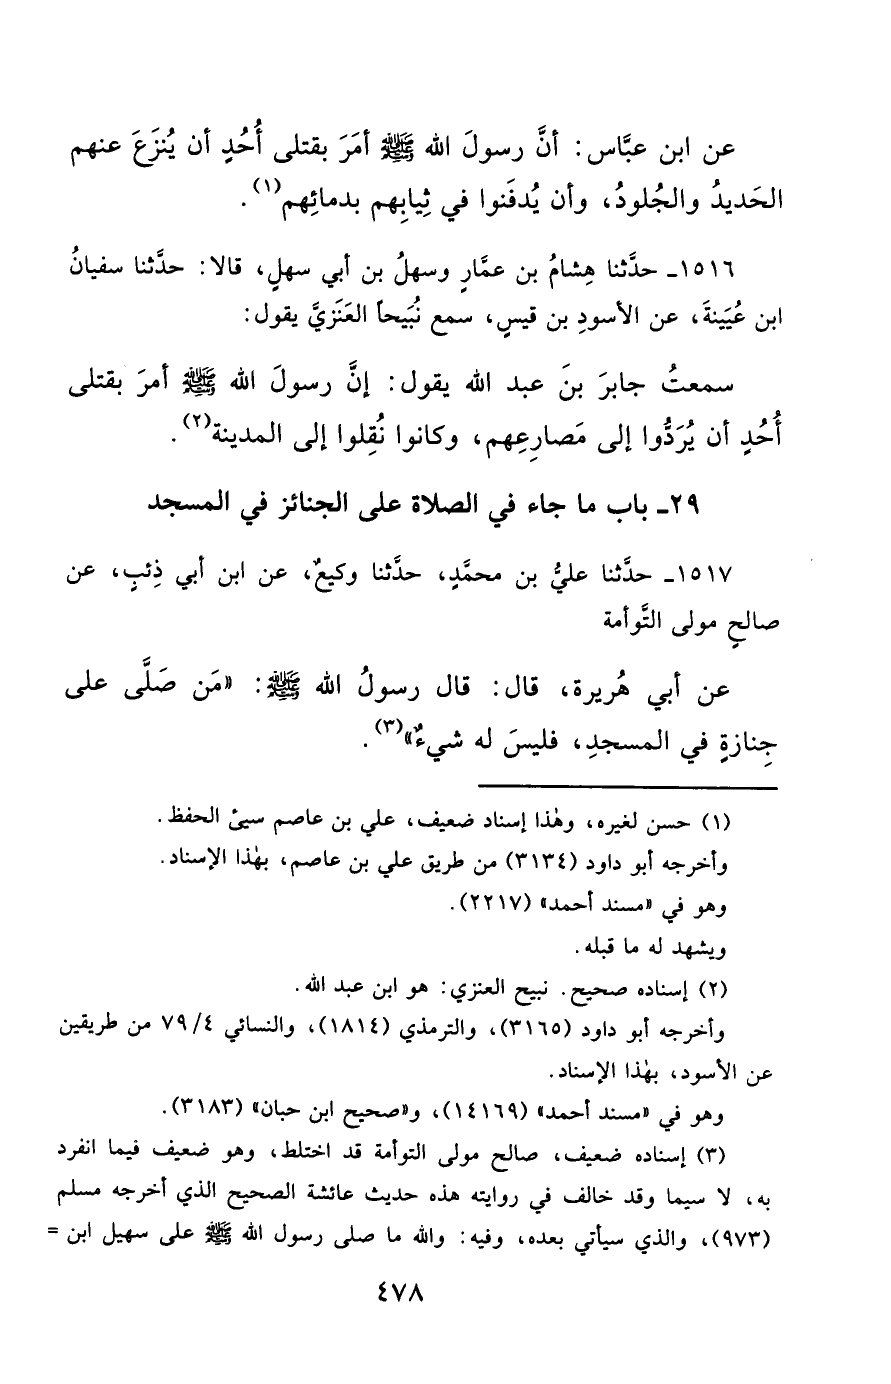 عن ابن عبَّاس: أنَّ رسولَ الله ﷺ أمَرَ بقتلى أُحُدٍ أن يُنزَعَ عنهم
الحَديدُ والجُلودُ، وأن يُدفَنوا في ثِيابِهم بدمائِهم(١).
١٥١٦ـ حدَّثنا هِشامُ بن عمَّارٍ وسهلُ بن أبي سهلٍ، قالا: حدَّثنا سفيانُ
ابن عُيَينةَ، عن الأسودِ بن قيسٍ، سمع نُبَيحاً العَنَزيَّ يقول:
سمعتُ جابرَ بنَ عبد الله يقول: إنَّ رسولَ الله ﷺ أمرَ بقتلى
أُحُدٍ أن يُرَدُّوا إلى مَصارِعِهم، وكانوا نُقِلوا إلى المدينة(٢).
٢٩ـ باب ما جاء في الصلاة على الجنائز في المسجد
١٥١٧ـ حدَّثنا عليُّ بن محمَّدٍ، حدَّثنا وكيعٌ، عن ابن أبي ذِئبٍ، عن
صالحٍ مولى التَّوأمة
عن أبي هُريرة، قال: قال رسولُ الله ﷺ: «مَن صَلَّى على
جِنازةٍ في المسجدِ، فليسَ له شيءٌ»(٣).
(١) حسن لغيره، وهٰذا إسناد ضعيف، علي بن عاصم سيئ الحفظ.
وأخرجه أبو داود (٣١٣٤) من طريق علي بن عاصم، بهٰذا الإسناد.
وهو في «مسند أحمد» (٢٢١٧).
ويشهد له ما قبله.
(٢) إسناده صحيح. نبيح العنزي: هو ابن عبد الله.
وأخرجه أبو داود (٣١٦٥)، والترمذي (١٨١٤)، والنسائي ٧٩/٤ من طريقين
عن الأسود، بهٰذا الإسناد.
وهو في «مسند أحمد» (١٤١٦٩)، و«صحيح ابن حبان» (٣١٨٣).
(٣) إسناده ضعيف، صالح مولى التوأمة قد اختلط، وهو ضعيف فيما انفرد
به، لا سيما وقد خالف في روايته هذه حديث عائشة الصحيح الذي أخرجه مسلم
(٩٧٣)، والذي سيأتي بعده، وفيه: والله ما صلى رسول الله ﷺ على سهيل ابن =
٤٧٨